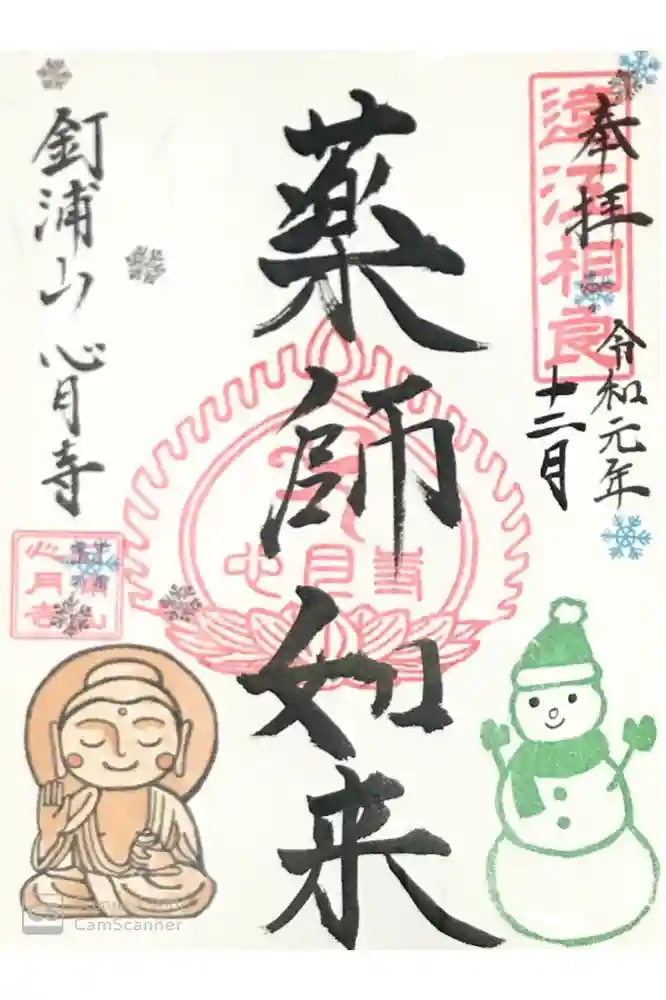 奉拝
遠江相良
令和元年
十二月
薬師如来
心月寺
釘浦山 心月寺
CamScanner